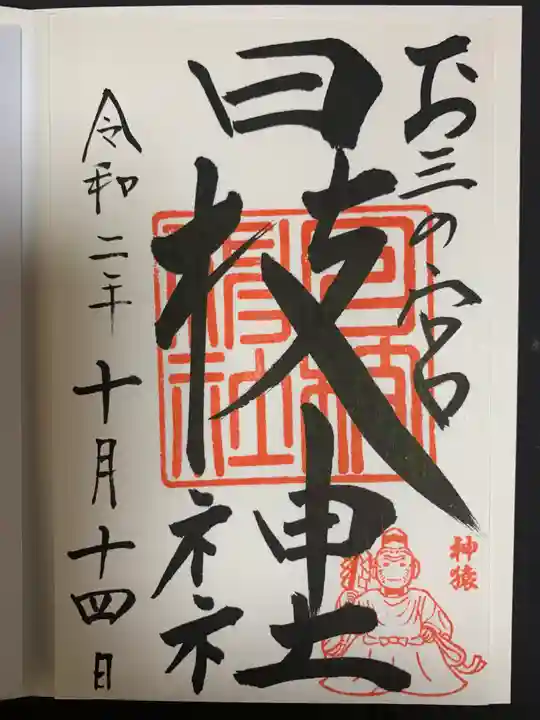 お三の宮
日枝神社
令和二年十月十四日
神猿